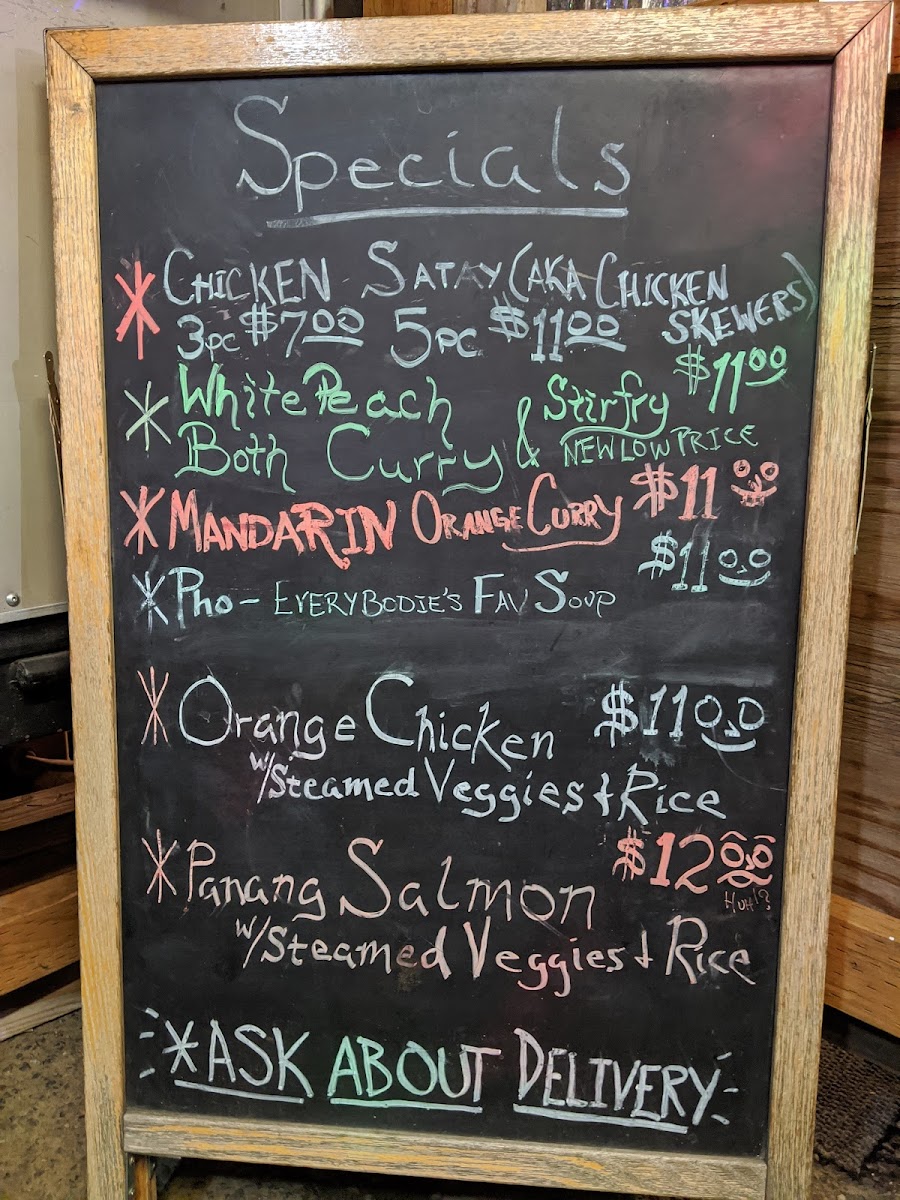 Specials
* CHICKEN SATAY (AKA CHICKEN SKEWERS)
3pc $7.00 5pc $11.00
* White Peach Stirfry $11.00
Both Curry & NEW LOW PRICE
* MANDARIN ORANGE CURRY $11.00
* Pho - EVERYBODIE'S FAV SOUP $11.00
* Orange Chicken $11.00
w/ Steamed Veggies & Rice
* Panang Salmon $12.00
HUH!?
w/ Steamed Veggies & Rice
*ASK ABOUT DELIVERY